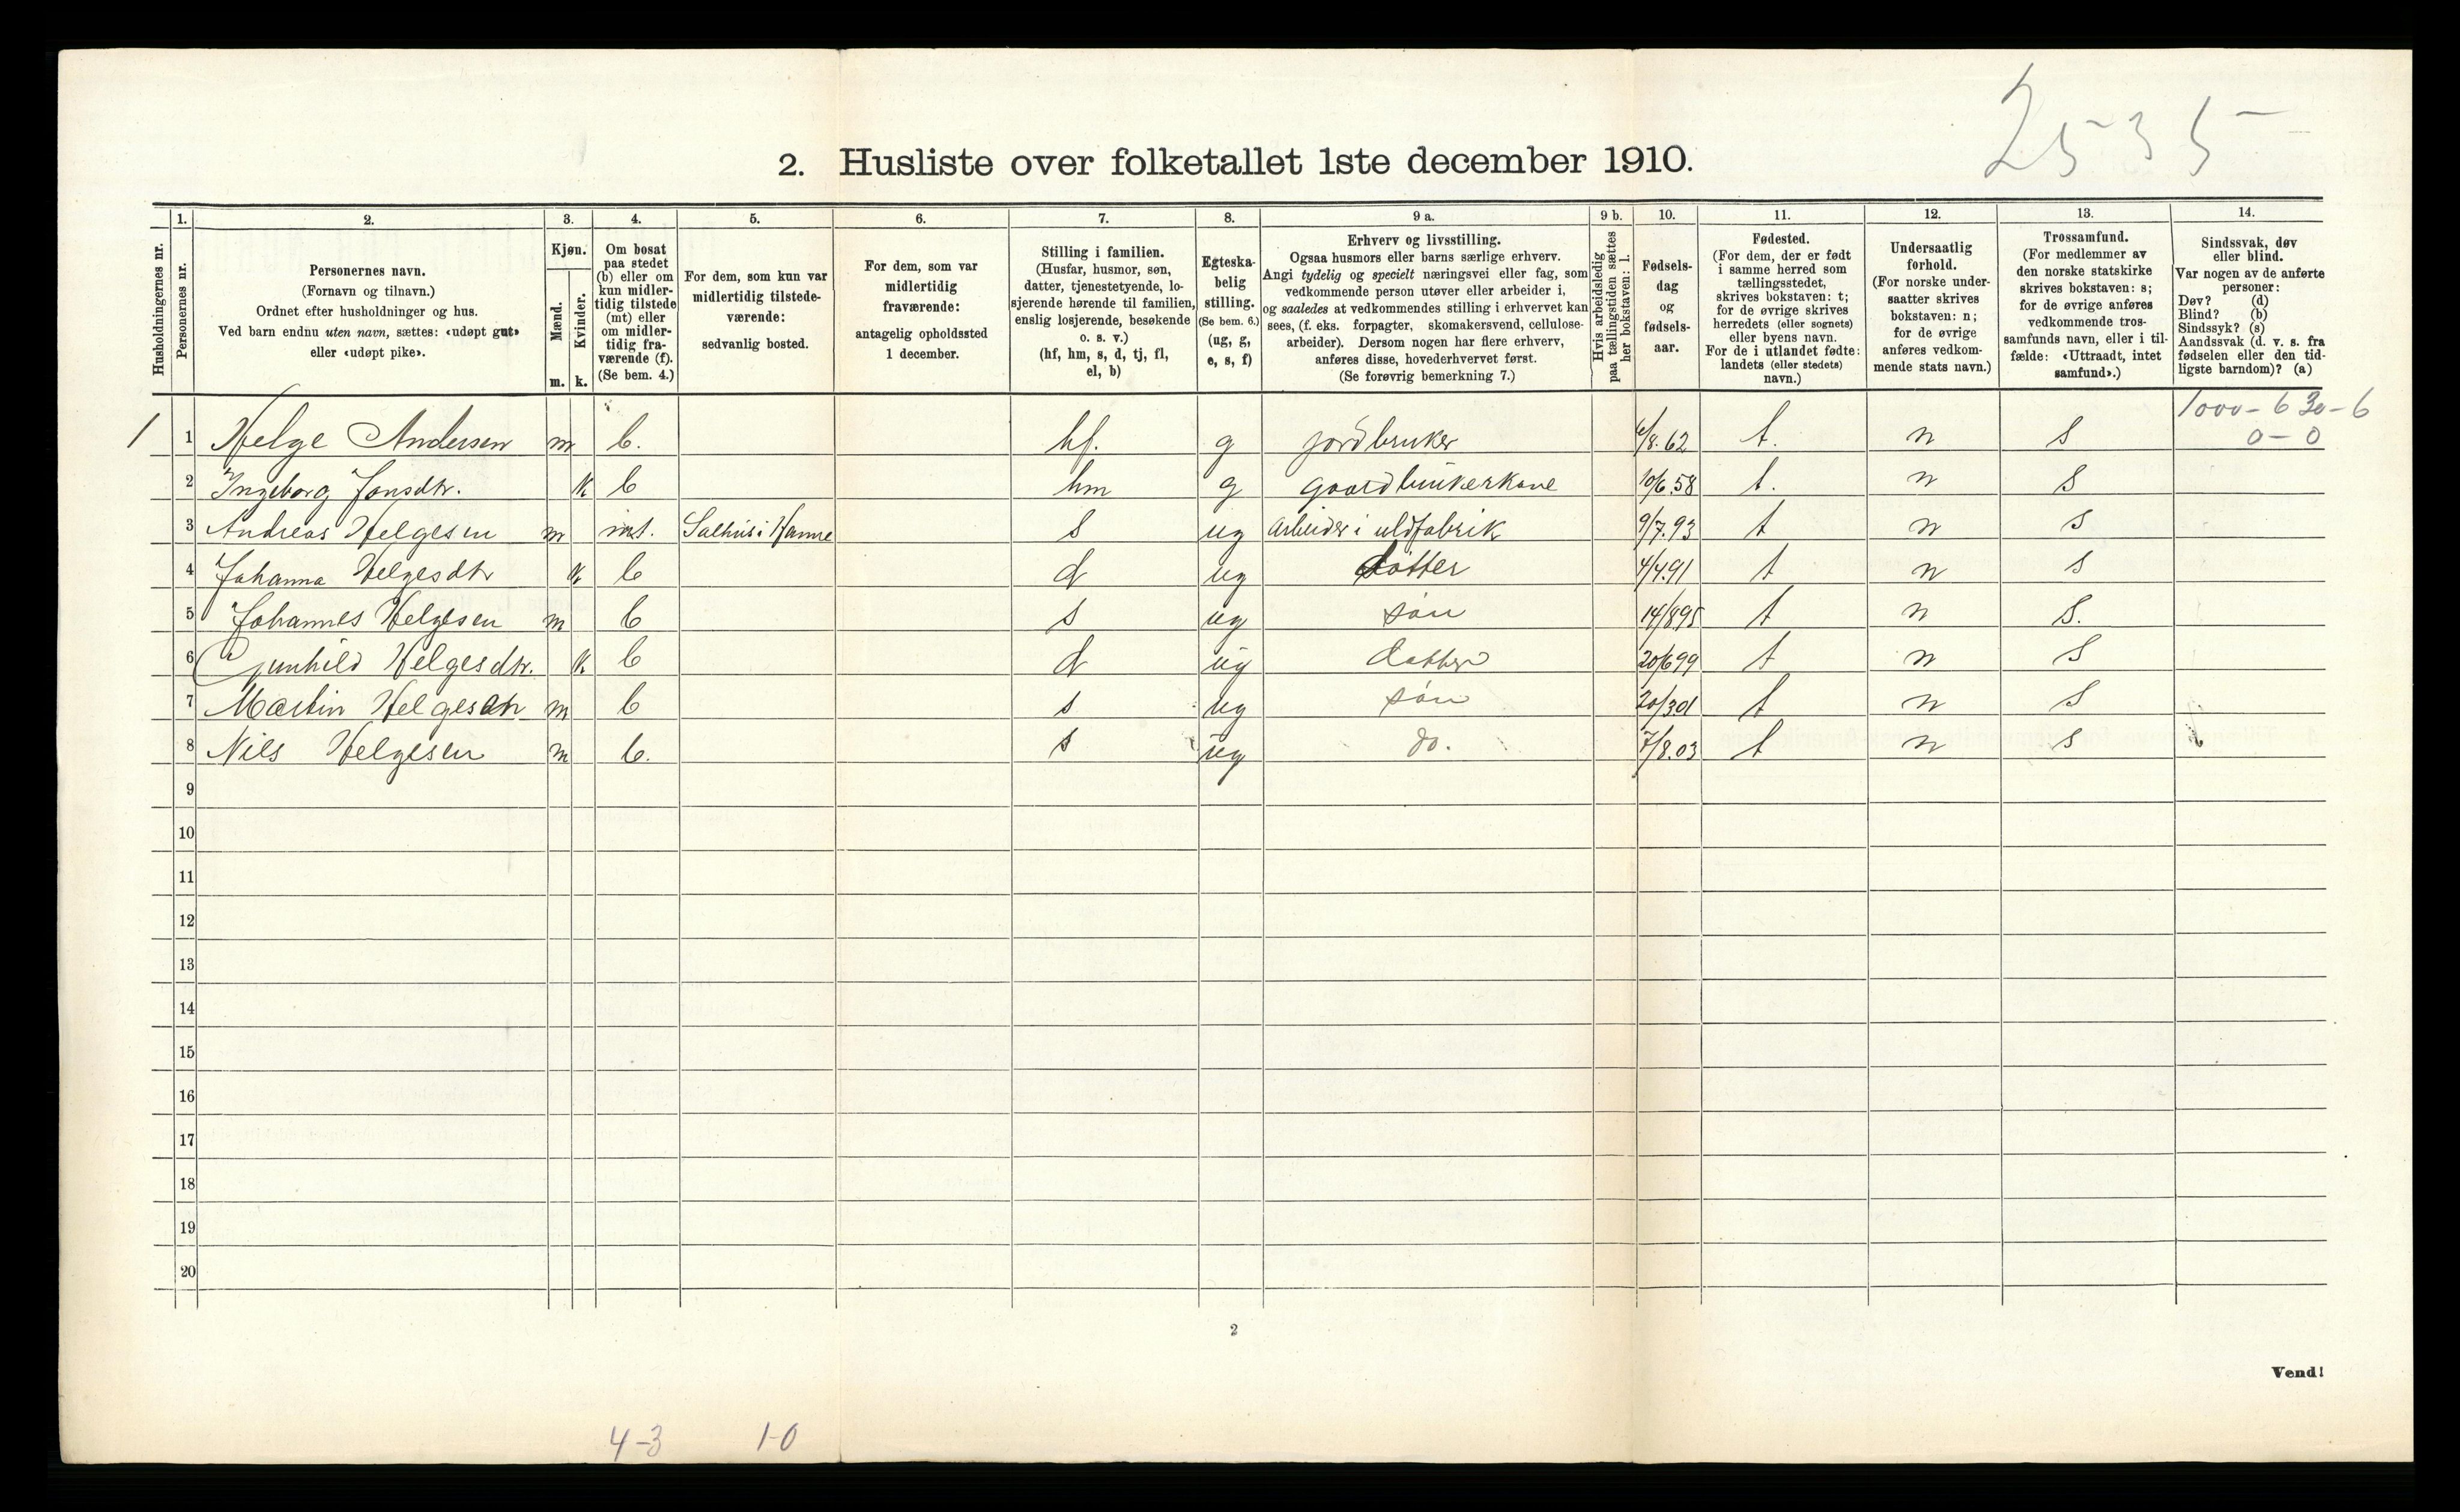 2535
2. Husliste over folketallet 1ste december 1910.
Husholdningernes nr.
1.
Personernes nr.
2.
Personernes navn.
(Fornavn og tilnavn.)
Ordnet efter husholdninger og hus.
Ved barn endnu uten navn, sættes: «udøpt gut»
eller «udøpt pike».
3.
Kjøn.
Mænd.
Kvinder.
m. k.
4.
Om bosat
paa stedet
(b) eller om
kun midler-
tidig tilstede
(mt) eller
om midler-
tidig fra-
værende (f).
(Se bem. 4.)
5.
For dem, som kun var
midlertidig tilstede-
værende:
sedvanlig bosted.
6.
For dem, som var
midlertidig
fraværende:
antagelig opholdssted
1 december.
7.
Stilling i familien.
(Husfar, husmor, søn,
datter, tjenestetyende, lo-
sjerende hørende til familien,
enslig losjerende, besøkende
o. s. v.)
(hf, hm, s, d, tj, fl,
el, b)
8.
Egteska-
belig
stilling.
(Se bem. 6.)
(ug, g,
e, s, f)
9 a.
Erhverv og livsstilling.
Ogsaa husmors eller barns særlige erhverv.
Angi tydelig og specielt næringsvei eller fag, som
vedkommende person utøver eller arbeider i,
og saaledes at vedkommendes stilling i erhvervet kan
sees, (f. eks. forpagter, skomakersvend, cellulose-
arbeider). Dersom nogen har flere erhverv,
anføres disse, hovederhvervet først.
(Se forøvrig bemerkning 7.)
9 b.
Hvis arbeidsledig
paa tællingstiden sættes
her bokstaven: l.
10.
Fødsels-
dag
og
fødsels-
aar.
11.
Fødested.
(For dem, der er født
i samme herred som
tællingsstedet,
skrives bokstaven: t;
for de øvrige skrives
herredets (eller sognets)
eller byens navn.
For de i utlandet fødte:
landets (eller stedets)
navn.)
12.
Undersaatlig
forhold.
(For norske under-
saatter skrives
bokstaven: n;
for de øvrige
anføres vedkom-
mende stats navn.)
13.
Trossamfund.
(For medlemmer av
den norske statskirke
skrives bokstaven: s;
for de øvrige anføres
vedkommende tros-
samfunds navn, eller i til-
fælde: «Uttraadt, intet
samfund».)
14.
Sindssvak, døv
eller blind.
Var nogen av de anførte
personer:
Døv? (d)
Blind? (b)
Sindssyk? (s)
Aandssvak (d. v. s. fra
fødselen eller den tid-
ligste barndom)? (a)
1000-630-6
0-0
1 1 Helge Andersen m b. hf. g jordbruker 6/8.62 t. n s
2 Ingeborg Jonsdtr. k b hm g gaardbrukerkone 10/6.58 t. n s
3 Andreas Helgesen m mt. Salhus i Hamre s ug arbeider i uldfabrik 9/7.93 t n s
4 Johanna Helgesdtr k b d ug datter 4/4.91 t n s
5 Johannes Helgesen m b s ug søn 14/8 95 t n s.
6 Gunhild Helgesdtr. k b d ug datter 20/6 99 t n s
7 Martin Helgesen m b s ug søn 20/3.01 t n s
8 Nils Helgesen m b. s ug do. 7/8.03 t n s
9
10
11
12
13
14
15
16
17
18
19
20
2
Vend!
4-3 1-0